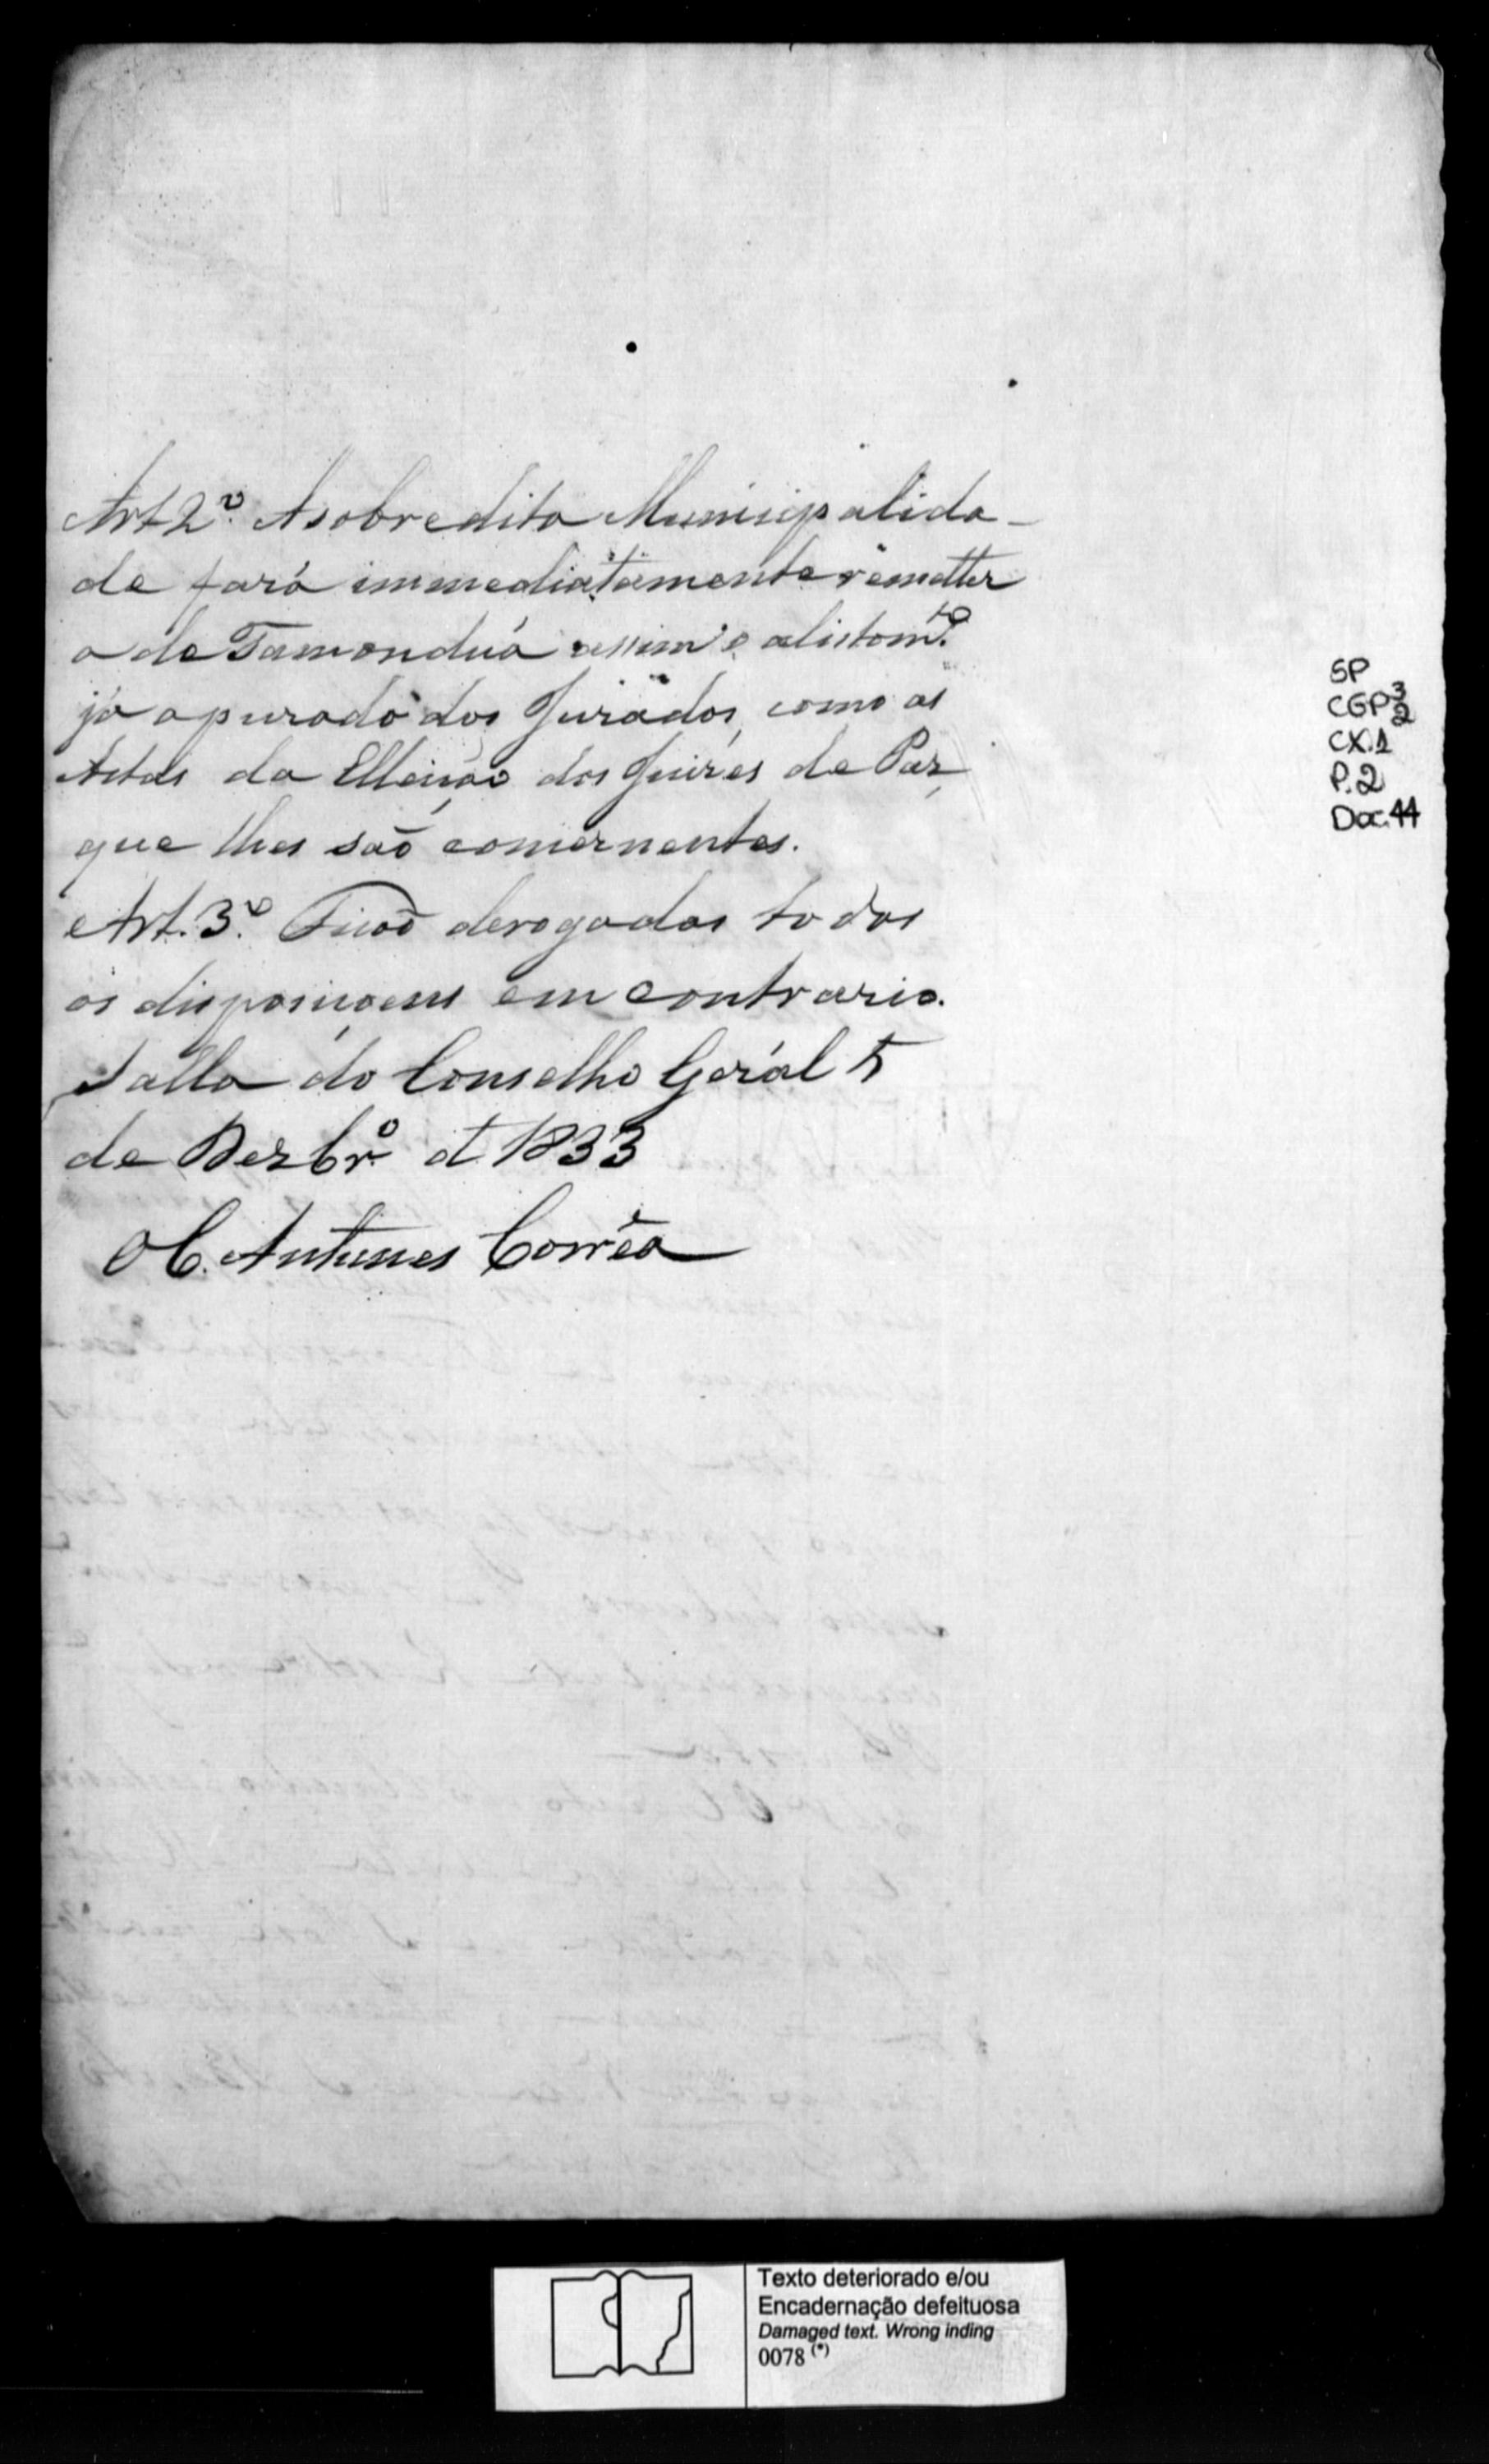 Art 2º. A sobredita Municipalida-
de fará immediatamente remetter
a de Tamanduá assim o alistamto.
já apurado dos Jurados, como as
Actas da Elleição dos Juizes de Paz,
que lhes saõ concernentes.
Art. 3º. Ficaõ derogadas todas
as disposiçoens em contrario.
Salla do Conselho Geral 5
de Dezbrº d 1833
O C. Antunes Corrêa
SP
CGP 3
2
CX.1
P.2
Doc.44
Texto deteriorado e/ou
Encadernação defeituosa
Damaged text. Wrong inding
0078 (*)